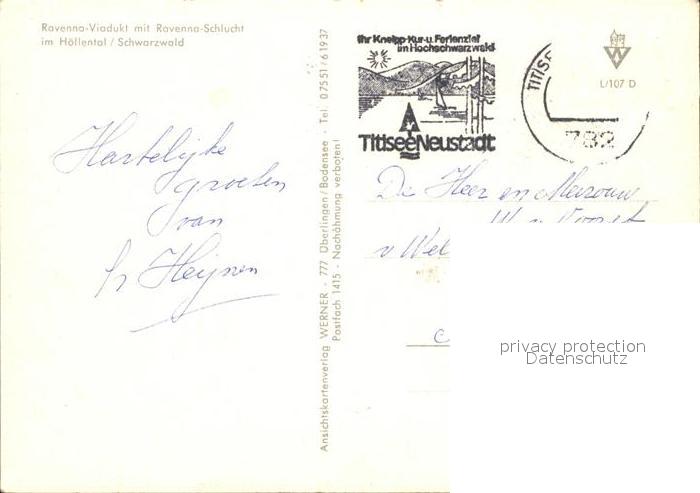 Ravenna-Viadukt mit Ravenna-Schlucht
im Höllental / Schwarzwald
Hartelijke
groeten
van
Heijnen
Ansichtskartenverlag WERNER - 777 Überlingen/Bodensee - Tel. 07551/61937
Postfach 1415 - Nachahmung verboten!
Ihr Kneipp-Kur-u. Ferienziel
im Hochschwarzwald
Titisee Neustadt
TITISE
782
L/107 D
De Heer en Mevrouw
v Wel
c
privacy protection
Datenschutz